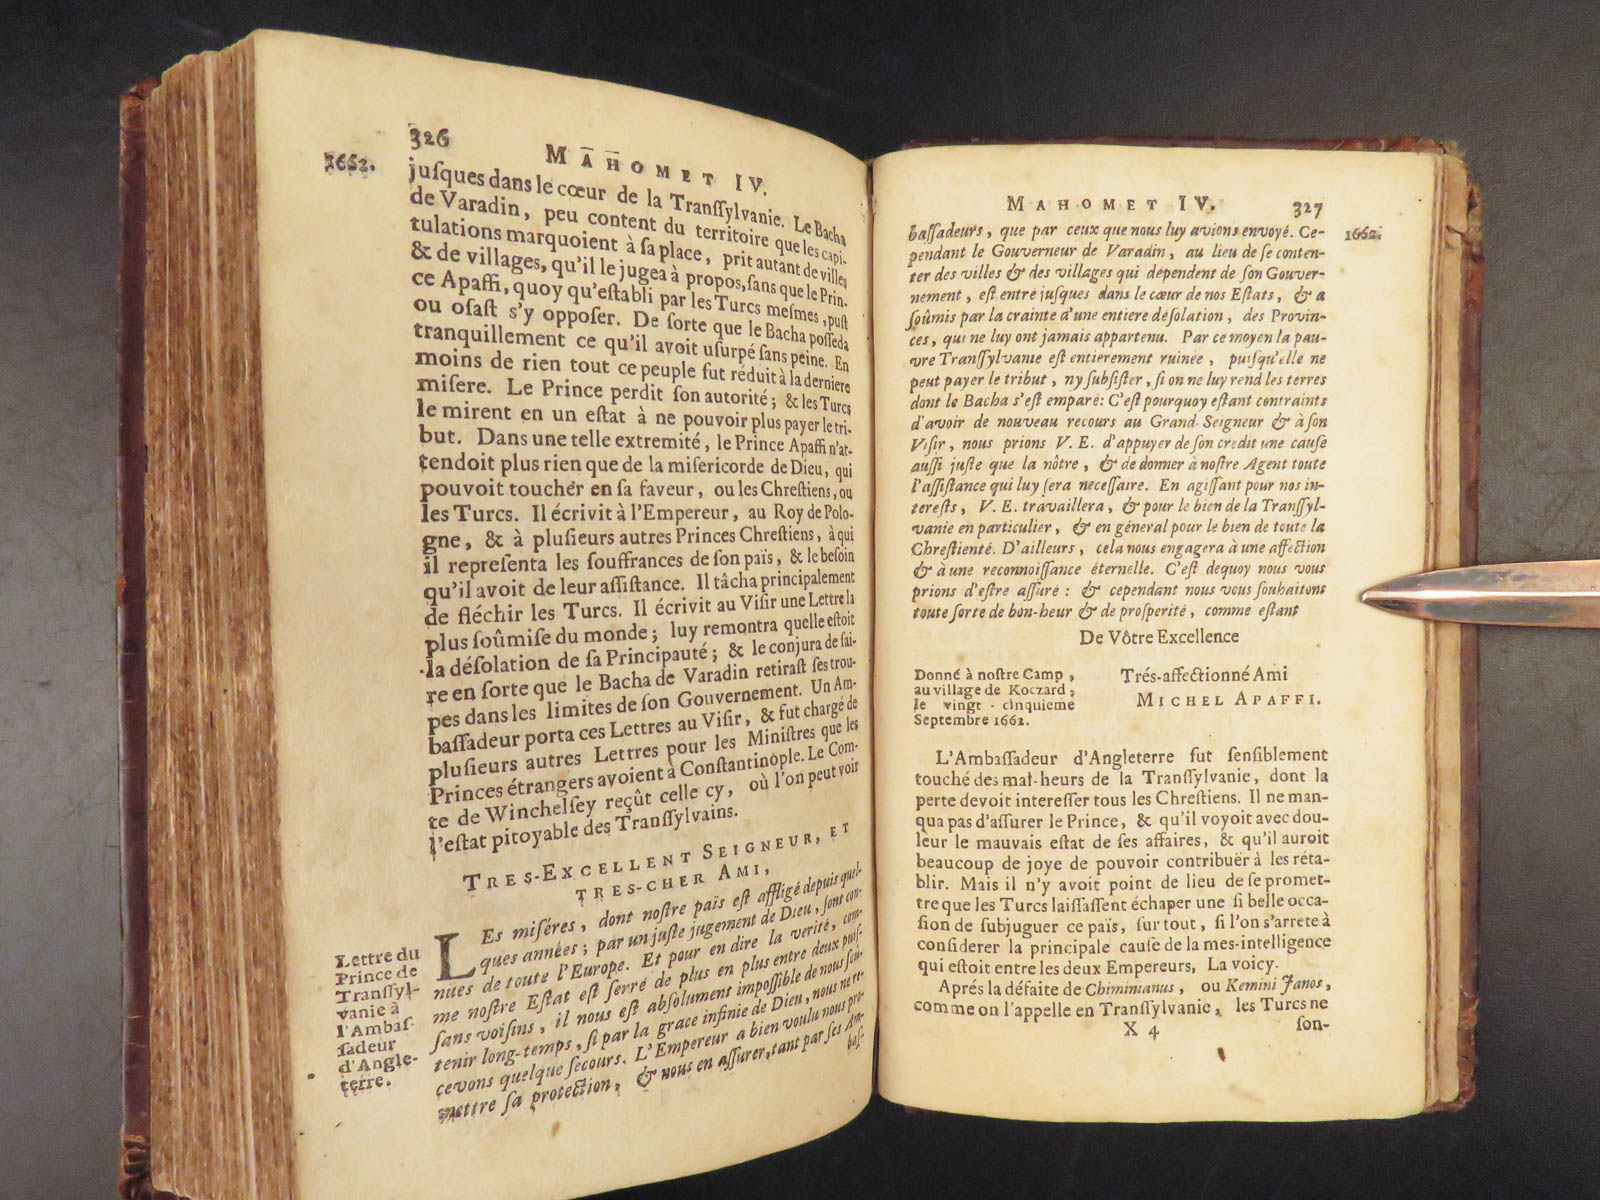 326
MAHOMET IV.
1662.
juſques dans le cœur de la Tranſſylvanie. Le Bacha
de Varadin, peu content du territoire que les capi-
tulations marquoient à ſa place, prit autant de villes
& de villages, qu'il le jugea à propos, ſans que le Prin-
ce Apaffi, quoy qu'eſtabli par les Turcs meſmes, puſt
ou oſaſt s'y oppoſer. De ſorte que le Bacha poſſeda
tranquillement ce qu'il avoit uſurpé ſans peine. En
moins de rien tout ce peuple fut réduit à la derniere
miſere. Le Prince perdit ſon autorité; & les Turcs
le mirent en un eſtat à ne pouvoir plus payer le tri-
but. Dans une telle extremité, le Prince Apaffi n'at-
tendoit plus rien que de la miſericorde de Dieu, qui
pouvoit toucher en ſa faveur, ou les Chreſtiens, ou
les Turcs. Il écrivit à l'Empereur, au Roy de Polo-
gne, & à pluſieurs autres Princes Chreſtiens, à qui
il repreſenta les ſouffrances de ſon païs, & le beſoin
qu'il avoit de leur aſſiſtance. Il tâcha principalement
de fléchir les Turcs. Il écrivit au Viſir une Lettre la
plus ſoûmiſe du monde; luy remontra quelle eſtoit
la déſolation de ſa Principauté; & le conjura de fai-
re en ſorte que le Bacha de Varadin retiraſt ſes trou-
pes dans les limites de ſon Gouvernement. Un Am-
baſſadeur porta ces Lettres au Viſir, & fut chargé de
pluſieurs autres Lettres pour les Miniſtres que les
Princes étrangers avoient à Conſtantinople. Le Com-
te de Winchelſey reçût celle cy, où l'on peut voir
l'eſtat pitoyable des Tranſſylvains.
TRES-EXCELLENT SEIGNEUR, ET
TRES-CHER AMI,
Lettre du
Prince de
Tranſſyl-
vanie à
l'Ambaſ-
ſadeur
d'Angle-
terre.
LEs miſéres, dont noſtre païs eſt affligé depuis quel-
ques années; par un juſte jugement de Dieu, ſont con-
nües de toute l'Europe. Et pour en dire la verité, com-
me noſtre Eſtat eſt ſerré de plus en plus entre deux puiſ-
ſans voiſins, il nous eſt abſolument impoſſible de nous ſoû-
tenir long-temps, ſi par la grace infinie de Dieu, nous ne re-
cevons quelque ſecours. L'Empereur a bien voulu nous pro-
mettre ſa protection, & nous en aſſurer, tant par ſes Am-
baſ-
MAHOMET IV. 327
1662.
baſſadeurs, que par ceux que nous luy avions envoyé. Ce-
pendant le Gouverneur de Varadin, au lieu de ſe conten-
ter des villes & des villages qui dépendent de ſon Gouver-
nement, eſt entré juſques dans le cœur de nos Eſtats, & a
ſoûmis par la crainte d'une entiere déſolation, des Provin-
ces, qui ne luy ont jamais appartenu. Par ce moyen la pau-
vre Tranſſylvanie eſt entierement ruinée, puiſqu'elle ne
peut payer le tribut, ny ſubſiſter, ſi on ne luy rend les terres
dont le Bacha s'eſt emparé: C'eſt pourquoy eſtant contraints
d'avoir de nouveau recours au Grand-Seigneur & à ſon
Viſir, nous prions V. E. d'appuyer de ſon credit une cauſe
auſſi juſte que la nôtre, & de donner à noſtre Agent toute
l'aſſiſtance qui luy ſera neceſſaire. En agiſſant pour nos in-
tereſts, V. E. travaillera, & pour le bien de la Tranſſyl-
vanie en particulier, & en géneral pour le bien de toute la
Chreſtienté. D'ailleurs, cela nous engagera à une affection
& à une reconnoiſſance éternelle. C'eſt dequoy nous vous
prions d'eſtre aſſuré: & cependant nous vous ſouhaitons
toute ſorte de bon-heur & de proſperité, comme eſtant
De Vôtre Excellence
Donné à noſtre Camp,
au village de Koczard,
le vingt-cinquieme
Septembre 1662.
Trés-affectionné Ami
MICHEL APAFFI.
L'Ambaſſadeur d'Angleterre fut ſenſiblement
touché des mal-heurs de la Tranſſylvanie, dont la
perte devoit intereſſer tous les Chreſtiens. Il ne man-
qua pas d'aſſurer le Prince, & qu'il voyoit avec dou-
leur le mauvais eſtat de ſes affaires, & qu'il auroit
beaucoup de joye de pouvoir contribuër à les réta-
blir. Mais il n'y avoit point de lieu de ſe promet-
tre que les Turcs laiſſaſſent échaper une ſi belle occa-
ſion de ſubjuguer ce païs, ſur tout, ſi l'on s'arrete à
conſiderer la principale cauſe de la mes-intelligence
qui eſtoit entre les deux Empereurs, La voicy.
Aprés la défaite de Chiminianus, ou Kemini Janos,
comme on l'appelle en Tranſſylvanie, les Turcs ne
X 4
ſon-